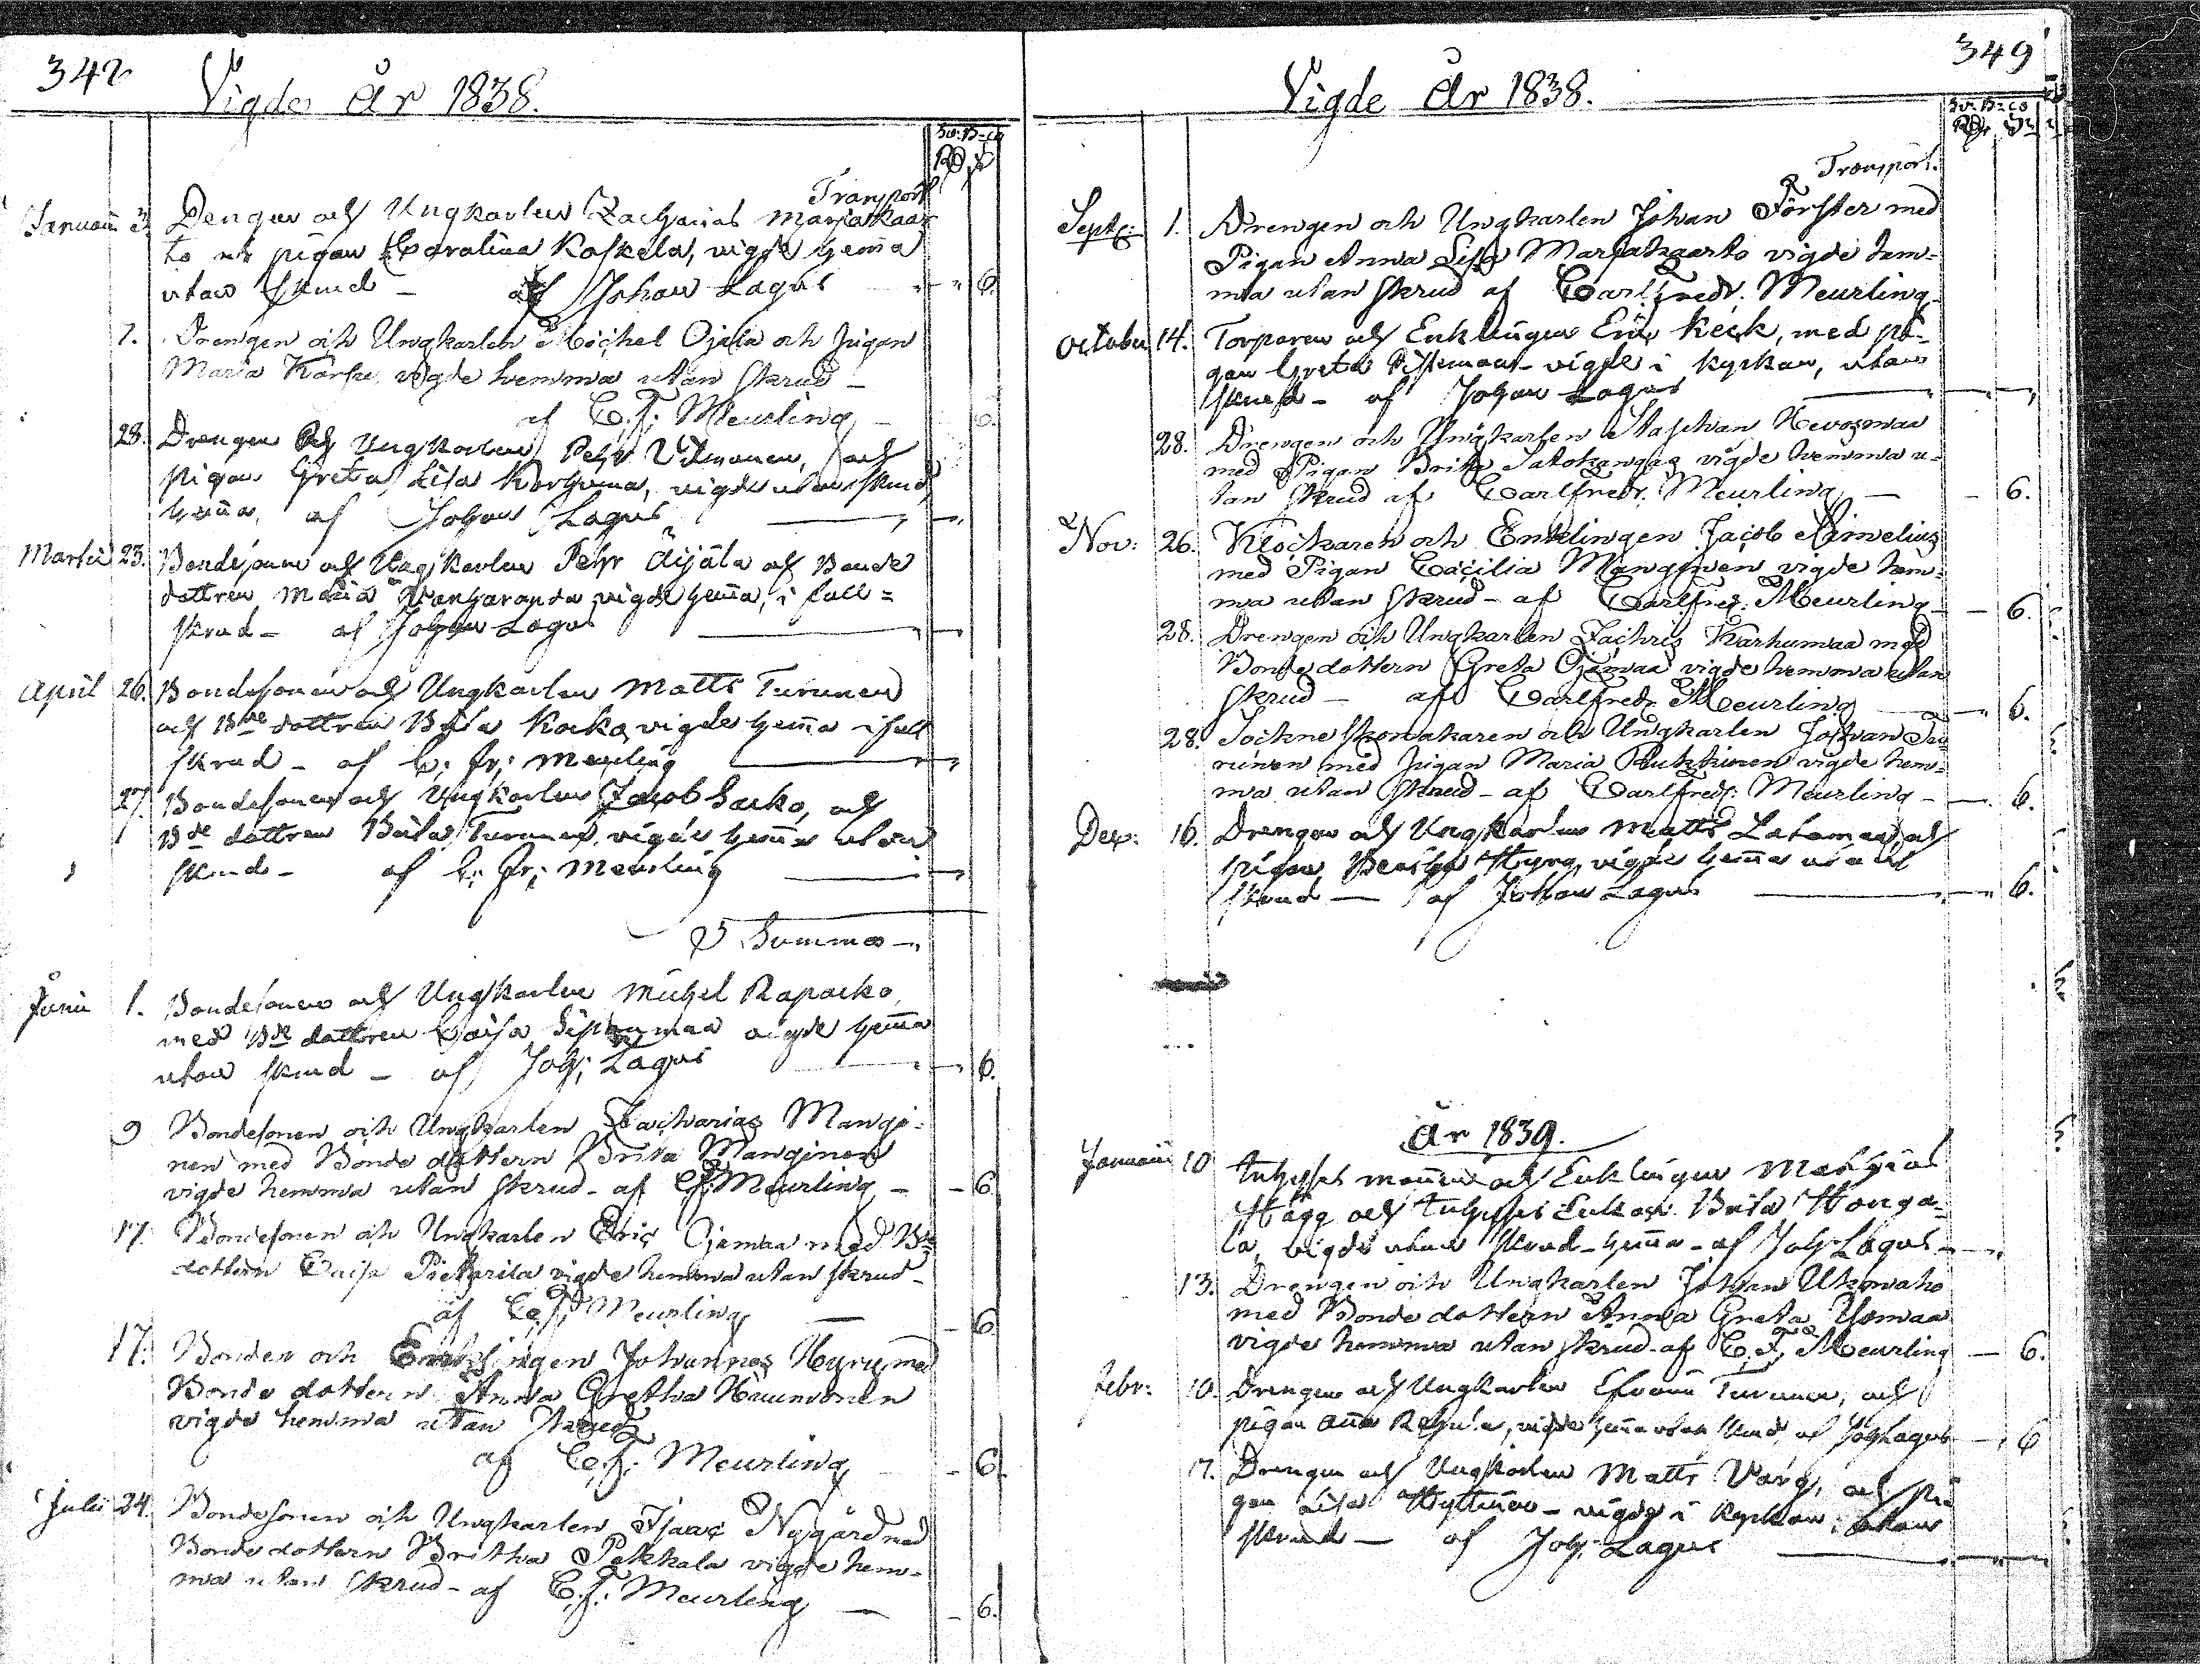 342
Vigde År 1838.
Transport
Januarii 3. Drengen och Ungkarlen Zacharias Marjakaar
to m: pigan Carolina Koskela, vigde hem̄a
utan skrud – af Johan Lagus – 6.
7. Drengen och Ungkarlen Michel Ojala och pigan
Maria vigde hemma utan skrud –
af C. F: Meurling – 6.
28. Drengen och Ungkarlen Pehr och
pigan Greta Lisa Karhuma, vigde utan skrud
hem̄a, af Johan Lagus
Martii 23. Bondesonen och Ungkarlen Pehr Äijälä och Bonde
dottren Maria vigde hem̄a, i full=
skrud – af Johan Lagus
April 26. Bondesonen och Ungkarlen Matts Turunen
och B:de dottren Brita vigde hem̄a i full
skrud – af C: Fr: Meurling
27. Bondesonen och Ungkarlen Jacob och
B:de dottren Brita Turunen, vigde hem̄a utan
skrud – af C: Fr: Meurling
Summa –
Junii 1. Bondesonen och Ungkarlen Michel Rapacko,
med B:de dottren Caisa vigde hem̄a
utan skrud – af Joh: Lagus – 6.
9 Bondesonen och Ungkarlen Zacharias Mangi-
nen med Bonde dottern Brita Manginen
vigde hemma utan skrud – af C.F. Meurling – 6.
17. Bondesonen och Ungkarlen Eric Ojamaa med B:de
dottern Caisa Pietarila vigde hemma utan skrud –
af C. F. Meurling – 6.
17. Bonden och Enklingen Johannes Hyry med
Bonde dottern Anna Gretha
vigde hemma utan skrud
af C. F: Meurling – 6.
Julii 24. Bondesonen och Ungkarlen Isaac Nygård med
Bonde dottern Britha Pekkala vigde hem-
ma utan skrud – af C. F: Meurling – 6.
349
Vigde År 1838.
Transport.
Sept: 1. Drengen och Ungkarlen Johan Förster med
Pigan Anna Lisa Marjakaarto vigde hem=
ma utan skrud af Carl Fredr. Meurling –
October 14. Torparen och Enklingen Eric Keck, med pi-
gan Greta vigde i kyrkan, utan
skrud – af Johan Lagus
28. Drengen och Ungkarlen Staphan Hevosmaa
med Pigan Brita Jatokangas vigde hemma u=
tan skrud af Carl Fredr. Meurling – 6.
Nov: 26. Klockaren och Enklingen Jacob Aimelius
med Pigan Cacilia Manginen vigde hem=
ma utan skrud – af Carl Fred: Meurling – 6.
28. Drengen och Ungkarlen Zachris Karhumaa med
Bondedottern Greta Ojamaa vigde hemma utan
skrud – af Carl Fredr. Meurling – 6.
28. Sockne skomakaren och Ungkarlen Johan Tu
runen med pigan Maria vigde hem=
ma utan skrud – af Carl Fredr: Meurling – 6.
Dec: 16. Drengen och Ungkarlen Matts Latomaa, och
pigan Hyry, vigde hem̄a utan
skrud – af Johan Lagus – 6.
År 1839.
Januarii 10 man̄en och Enklingen Mathias
Hägg och Enkan Brita Honga-
la, vigde utan skrud – hem̄a – af Joh: Lagus –
13. Drengen och Ungkarlen Johan Ukonaho
med Bonde dottern Anna Greta
vigde hemma utan skrud – af C. F. Meurling – 6.
Febr: 10. Drengen och Ungkarlen Turunen, och
pigan Anna vigde hem̄a utan skrud, af Joh: Lagus – 6
17. Drengen och Ungkarlen Matts Varg, och pi
gan Lisa – vigde i kyrkan, utan
skrud – af Joh: Lagus